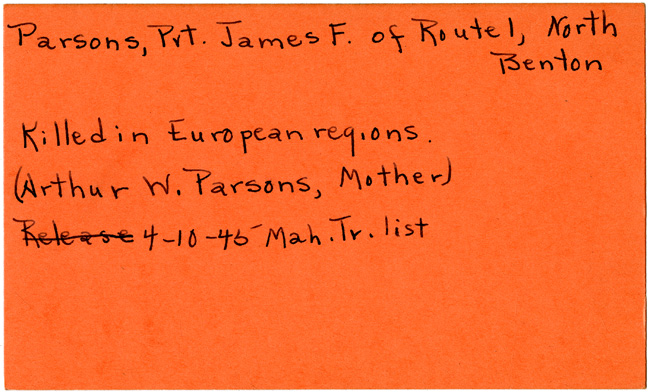 Parsons, Pvt. James F. of Route 1, North
Benton
Killed in European regions.
(Arthur W. Parsons, Mother)
Release 4-10-45 Mah. Tr. list